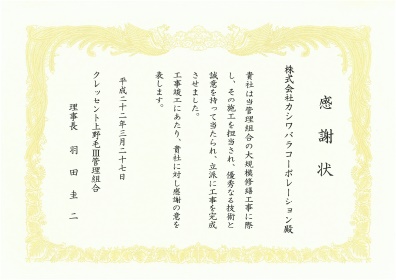 感謝状
株式会社カシワバラコーポレーション殿
貴社は当管理組合の大規模修繕工事に際
し、その施工を担当され、優秀なる技術と
誠意を持って当たられ、立派に工事を完成
させました。
工事竣工にあたり、貴社に対し感謝の意を
表します。
平成二十二年三月二十七日
クレッセント上野毛Ⅲ管理組合
理事長 羽田圭二